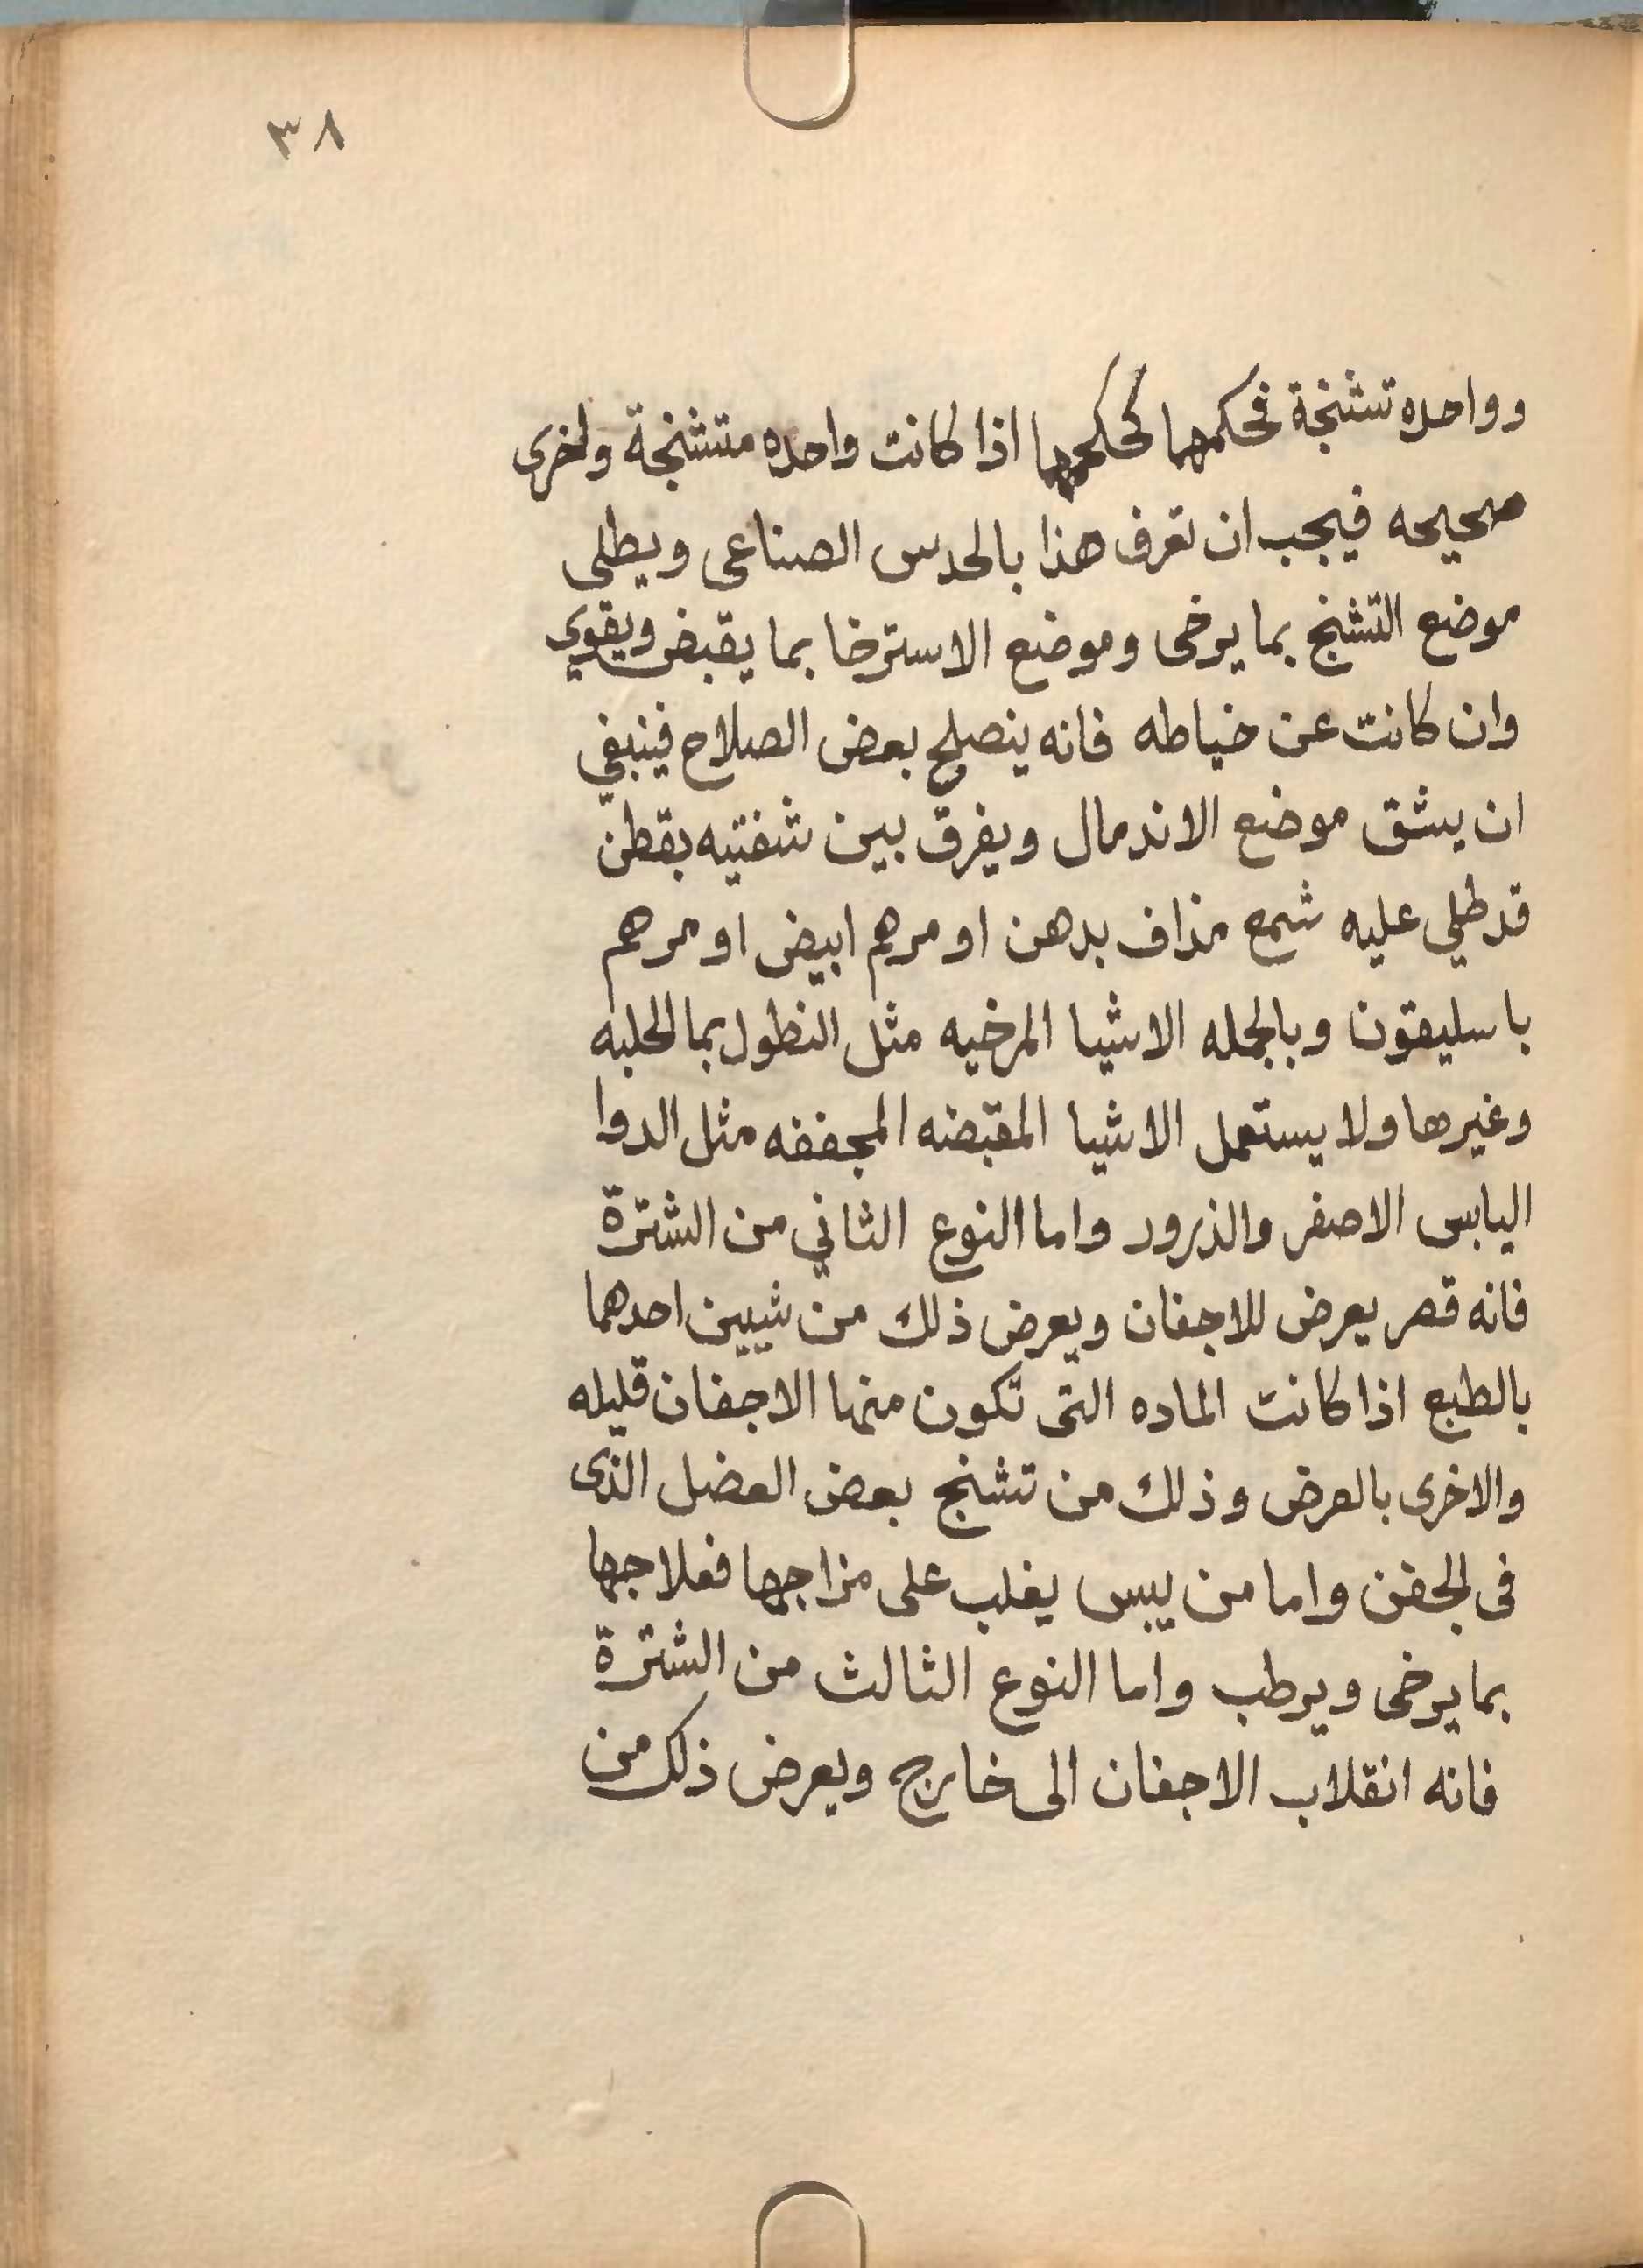 ٣٨
وواحده تشنجة فحكمها كحكمهما اذا كانت واحده متشنجة واخرى
صحيحه فيجب ان تعرف هذا بالحدس الصناعى ويطلى
موضع التشنج بما يرخى وموضع الاسترخا بما يقبض ويقوي
وان كانت عن خياطه فانه ينصلح بعض الصلاح فينبغي
ان يشق موضع الاندمال ويفرق بين شفتيه بقطن
قد طلي عليه شمع مذاف بدهن او مرهم ابيض او مرهم
باسليقون وبالجمله الاشيا المرخيه مثل النطول بما الحلبه
وغيرها ولا يستعمل الاشيا المقبضه المجففه مثل الدوا
اليابس الاصفر والذرور واما النوع الثاني من الشترة
فانه قصر يعرض للاجفان ويعرض ذلك من شيين احدهما
بالطبع اذا كانت الماده التى تكون منها الاجفان قليله
والاخرى بالعرض وذلك من تشنج بعض العضل الذى
فى الجفن واما من يبس يغلب على مزاجها فعلاجها
بما يرخى ويرطب واما النوع الثالث من الشترة
فانه انقلاب الاجفان الى خارج ويعرض ذلك من